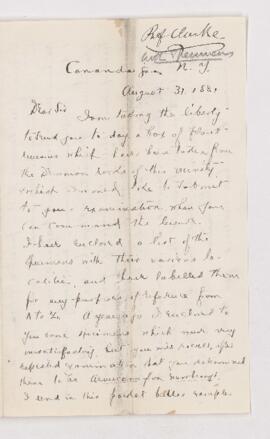 Prof. Clarke.
Canandaigua N.Y.
August 31. 188
Dear Sir
I am taking the liberty
to send you to day a box of plant
remains which have been taken from
the Devonian rocks of this vicinity
which I would like to submit
to your examination when you
can command the leisure.
I have enclosed a list of the
specimens with their various lo-
calities, and have labelled them
for any purposes of reference from
A to Z. A year ago I enclosed to
you some specimens which were very
unsatisfactory, but you will recall, after
repeated examination that you determined
them to be
I send in this packet better samples